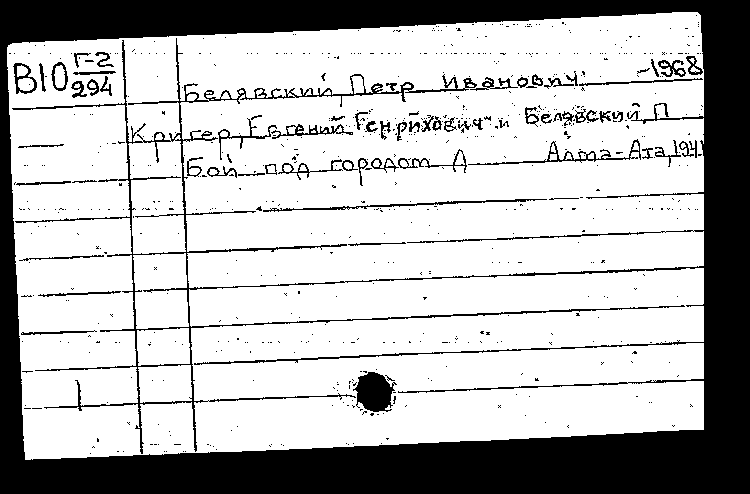 В10 Г-2
294
Белявский, Петр Иванович -1968
Кригер, Евгений Генрихович и Белявский, П
Бой под городом Л Алма-Ата, 1941